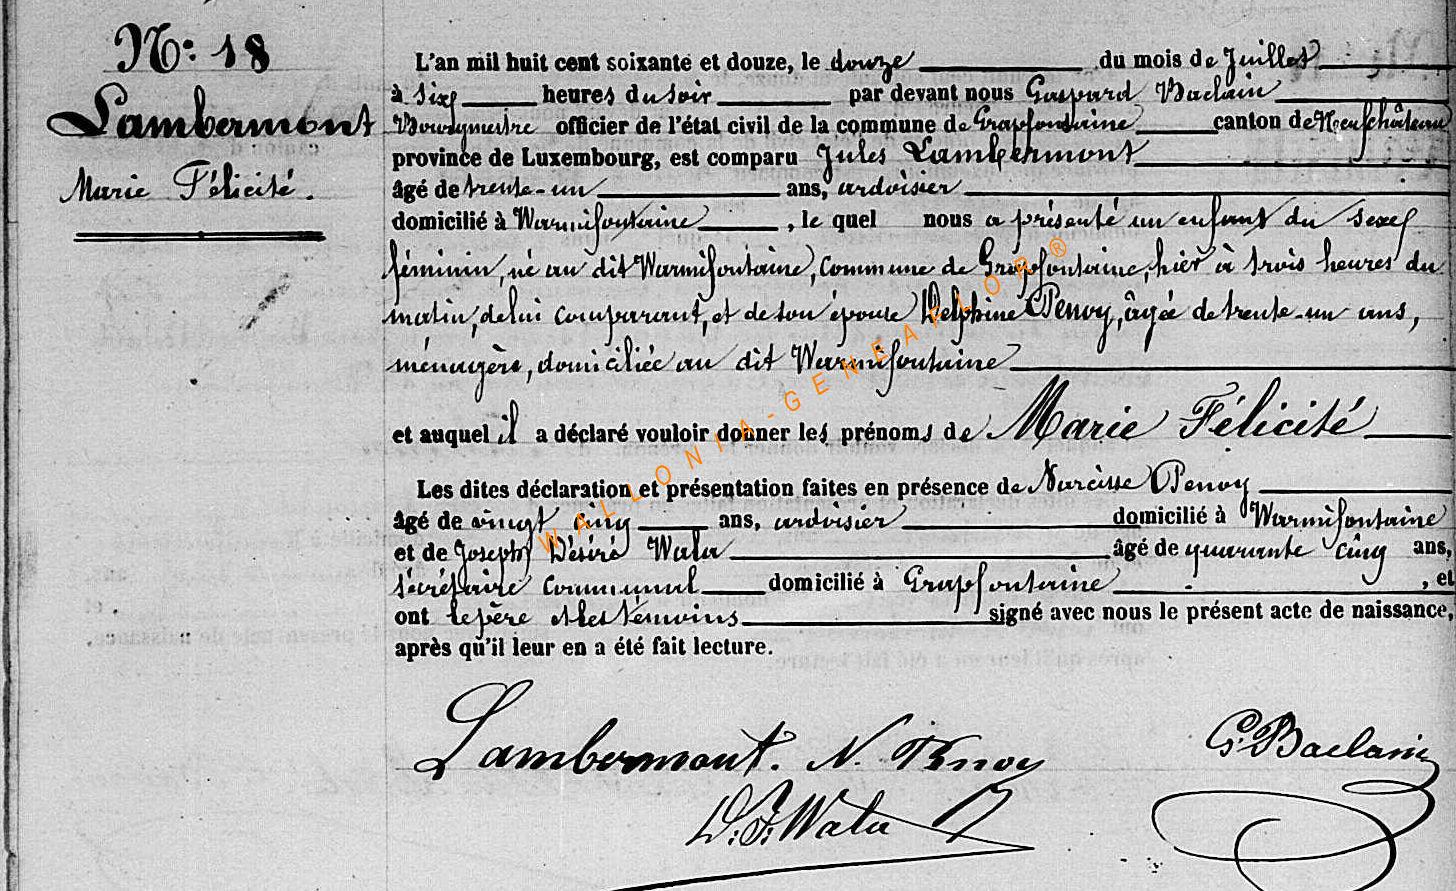 N°: 18
Lambermont
Marie Félicité.
L'an mil huit cent soixante et douze, le douze du mois de Juillet
à six heures du soir par devant nous Gaspard Baclain
Bourgmestre officier de l'état civil de la commune de Grapfontaine canton de Neufchâteau
province de Luxembourg, est comparu Jules Lambermont
âgé de trente-un ans, ardoisier
domicilié à Warmifontaine, le quel nous a présenté un enfant du sexe
féminin, né au dit Warmifontaine, commune de Grapfontaine, hier à trois heures du
matin, de lui comparant, et de son épouse Delphine Penoy, âgée de trente-un ans,
ménagère, domiciliée au dit Warmifontaine
et auquel il a déclaré vouloir donner les prénoms de Marie Félicité
Les dites déclaration et présentation faites en présence de Narcisse Penoy
âgé de vingt cinq ans, ardoisier domicilié à Warmifontaine
et de Joseph Désiré Wala âgé de quarante cinq ans,
secrétaire communal domicilié à Grapfontaine, et
ont le père et les témoins signé avec nous le présent acte de naissance,
après qu'il leur en a été fait lecture.
Lambermont. N. Penoy G. Baclain
D. J. Wala
WALLONIA-GENEAFLOR®